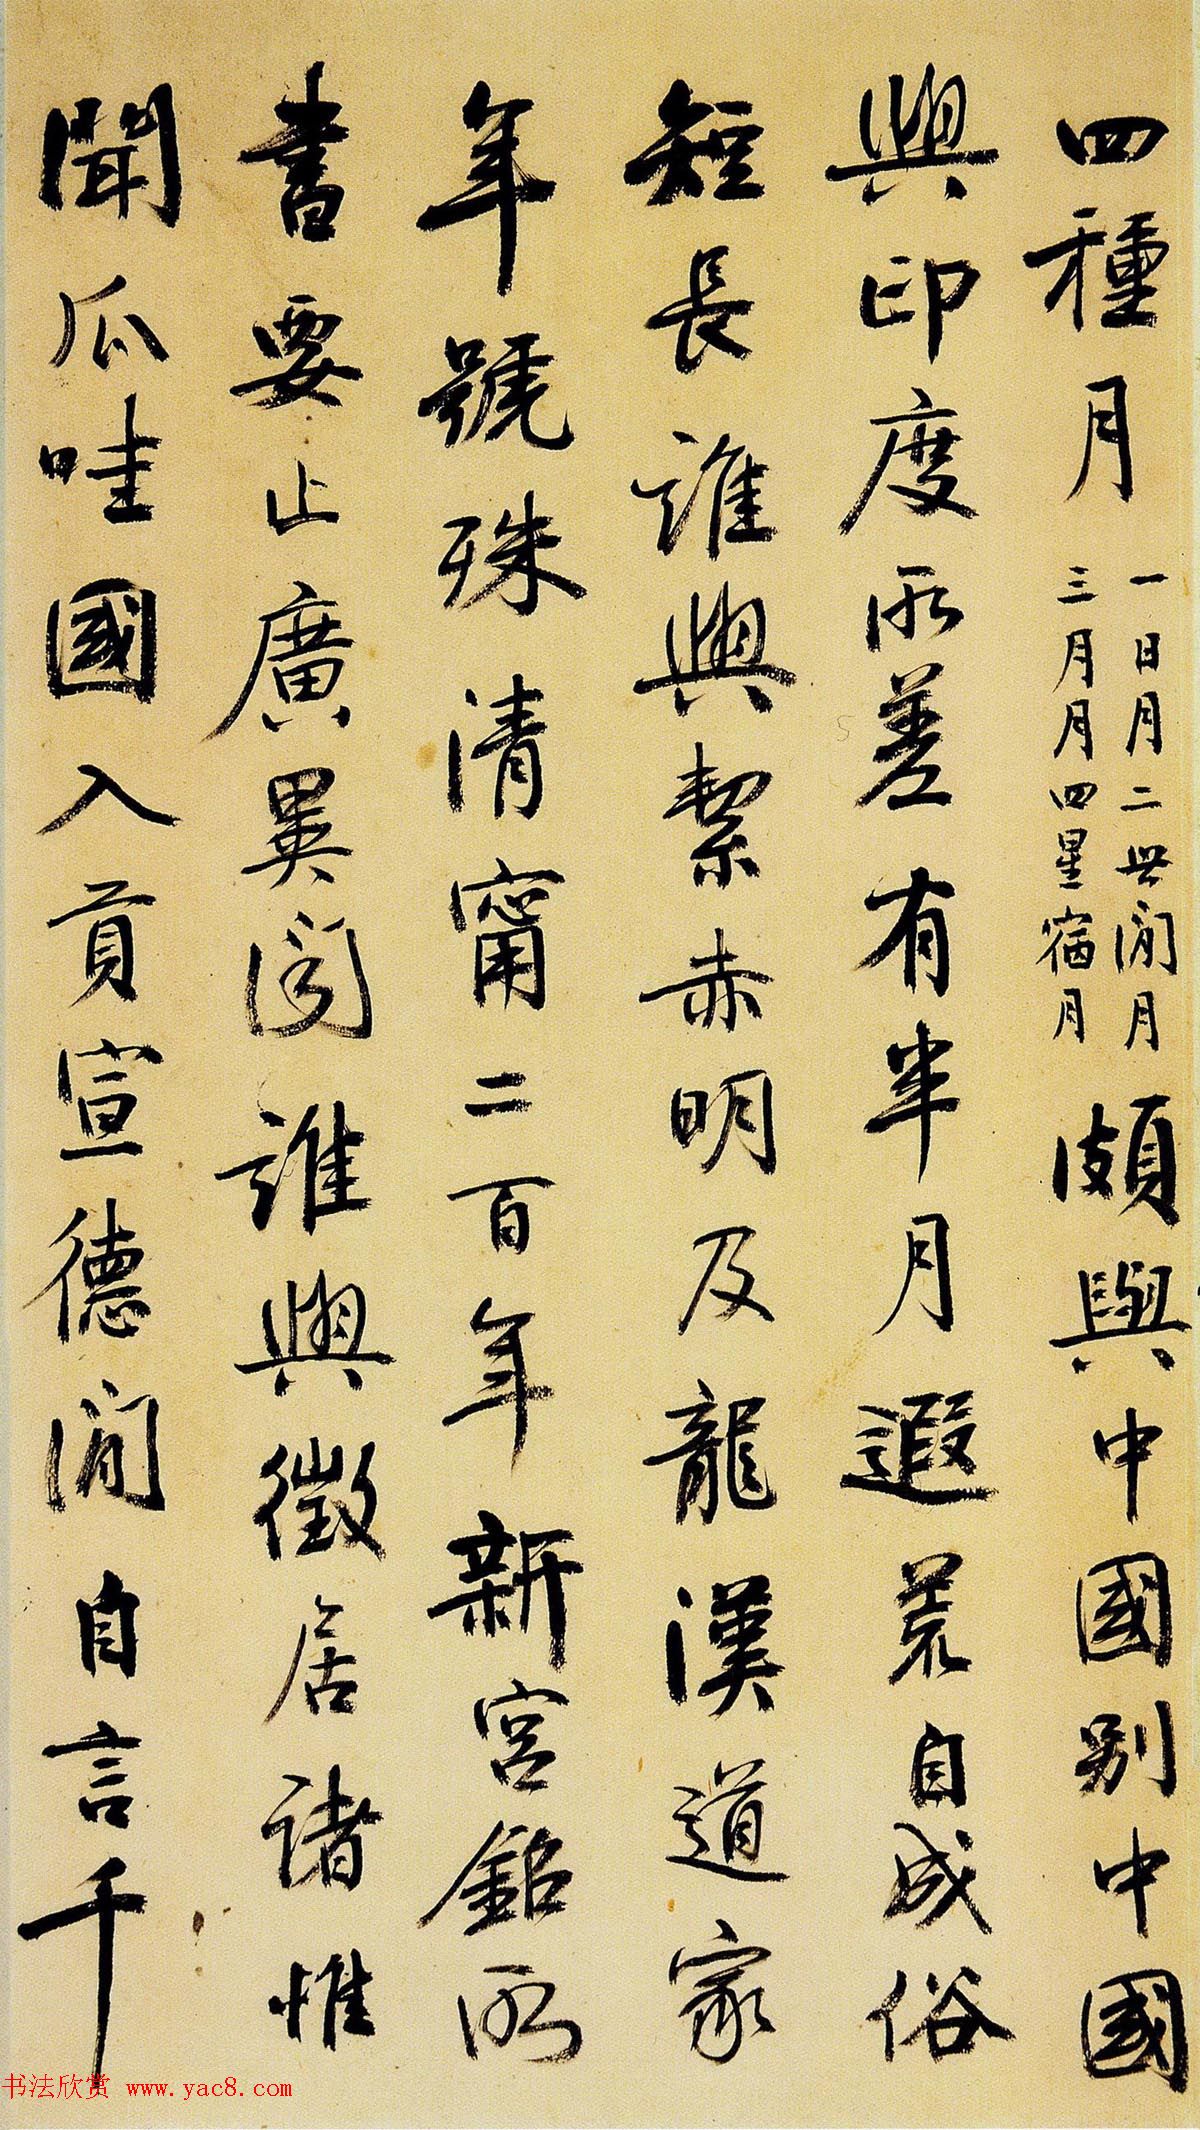 四種月
一日月二世間月
三月月四星宿月
頗與中國別中國
與印度所差有半月遐荒自成俗
短長誰與絜赤明及龍漢道家
年號殊清甯二百年新宮銘所
書要止廣異聞誰與徵居諸惟
聞爪哇國入貢宣德間自言千
书法欣赏 www.yac8.com